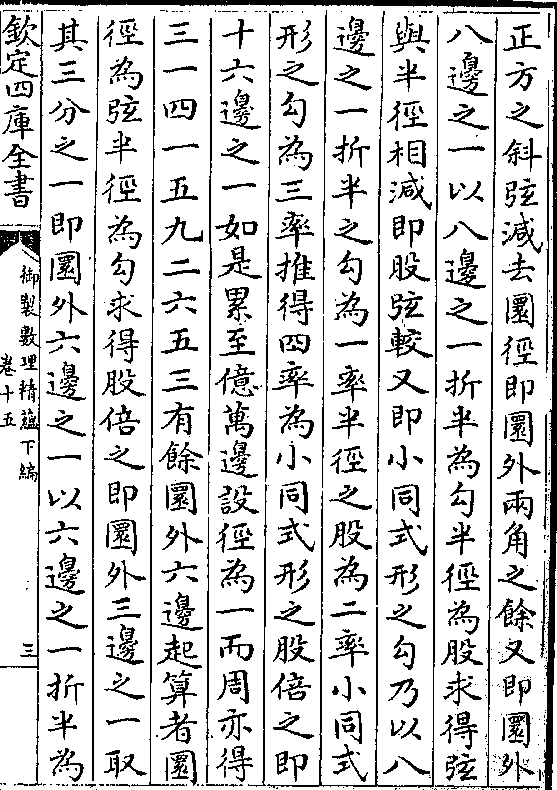 正方之斜弦減去圜徑即圜外兩角之餘又即圜外
八邊之一以八邊之一折半為勾半徑為股求得弦
與半徑相減即股弦較又即小同式形之勾乃以八
邊之一折半之勾為一率半徑之股為二率小同式
形之勾為三率推得四率為小同式形之股倍之即
十六邊之一如是累至億萬邊設徑為一而周亦得
三一四一五九二六五三有餘圜外六邊起算者圜
徑為弦半徑為勾求得股倍之即圜外三邊之一取
其三分之一即圜外六邊之一以六邊之一折半為
欽定四庫全書
御製數理精蘊下編
卷十五
三